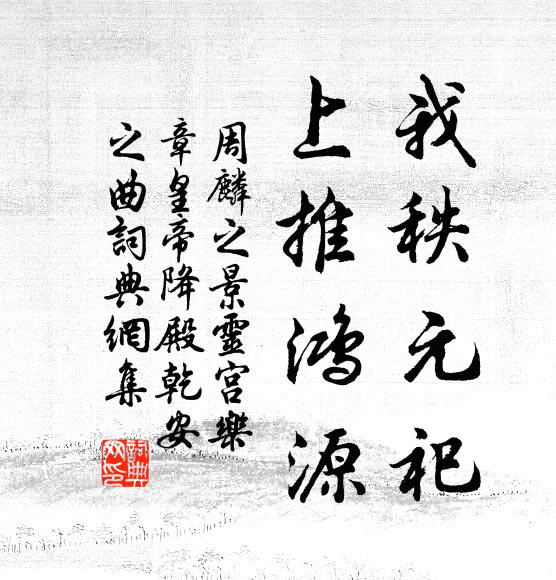 我秩元祀
上推鴻源
周麟之景靈宮樂
章皇帝降殿乾安
之曲詞典網集
詞典
网印